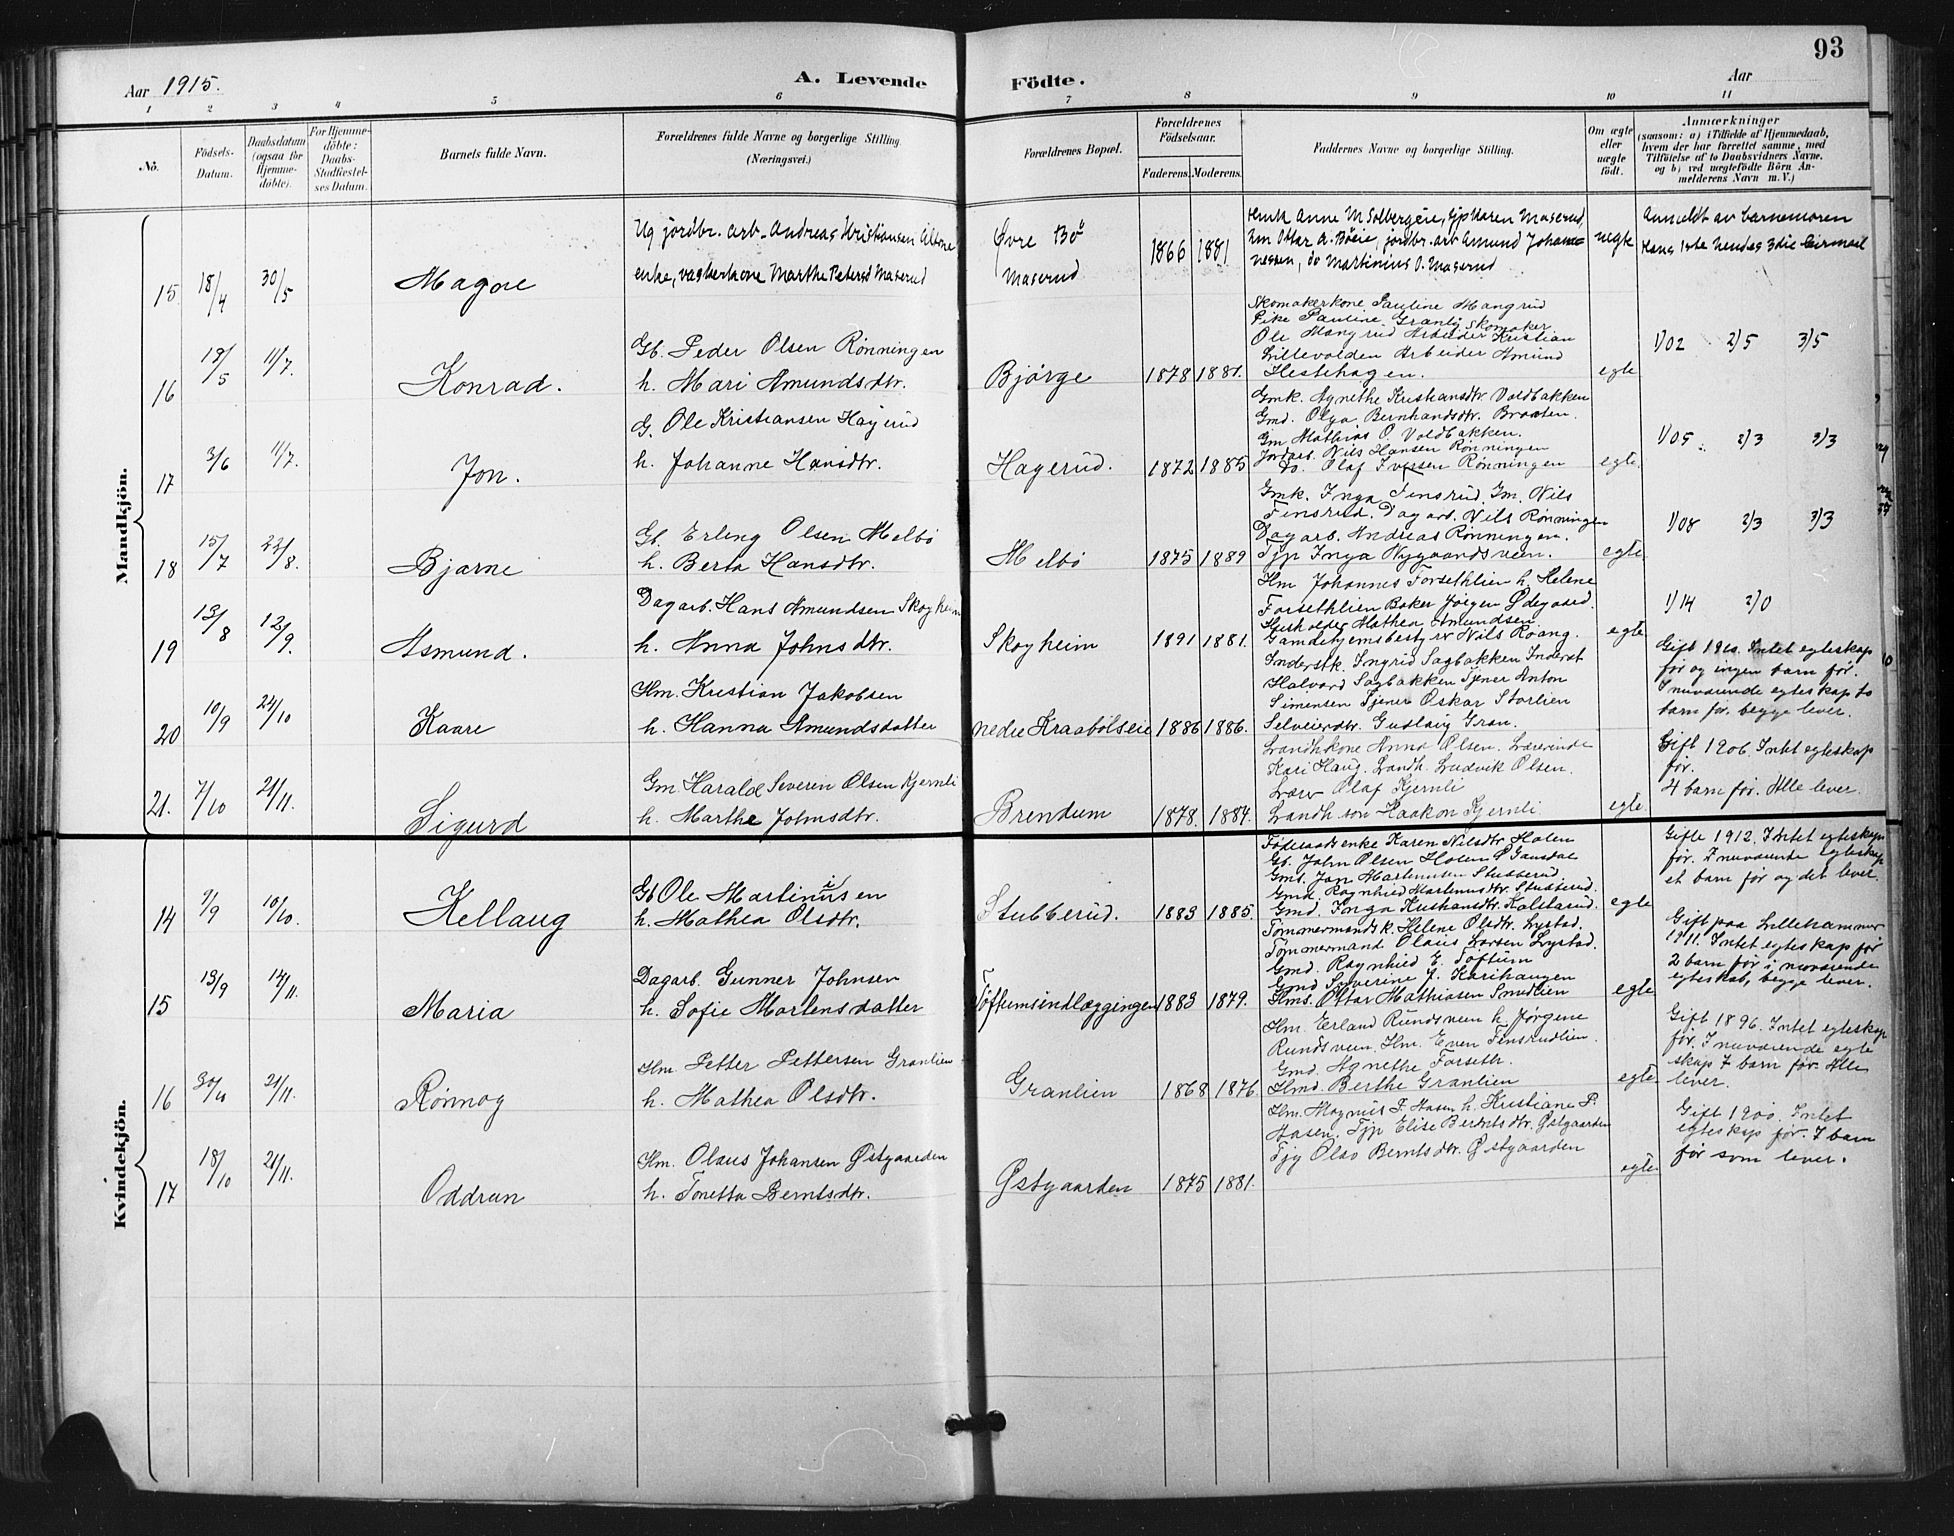 93
Aar 1915.
A. Levende Födte.
Aar
1 2 3 4 5 6 7 8 9 10 11
No.
Födsels-Datum.
Daabsdatum (ogsaa for Hjemme-döbte).
For Hjemme-döbte: Daabs-Stadfæstel-ses Datum.
Barnets fulde Navn.
Forældrenes fulde Navne og borgerlige Stilling (Næringsvei.)
Forældrenes Bopæl.
Forældrenes Födselsaar.
Faderens. Moderens.
Faddernes Navne og borgerlige Stilling.
Om ægte eller uægte födt.
Anmærkninger
(saasom: a) i Tilfælde af Hjemmedaab,
hvem der har forrettet samme, med
Tilföielse af to Daabsvidners Navne,
og b) ved uægtefödte Börn An-
melderens Navn m. V.)
Mandkjön.
15 18/4 30/5 Magne
Ug jordbr. arb. Andreas Kristiansen
enke, vaskerkone Marthe Petersd Maserud
Øvre Bö
Maserud
1866 1881
Gmk Anne M Solbergeie, Tjp Karen Maserud,
Um Ottar A. Böeie, jordbr. arb Amund Johan-
nessen, do Martinius O. Maserud
uegte
Anmeldt av barnemoren
Hans 1ste hendes 3die
16 18/5 11/7. Konrad.
Gb. Peder Olsen Rønningen
h. Mari Amundsdtr.
Bjørge 1878 1881.
Skomakerkone Pauline Mangrud
Pike Pauline Granli Skomaker
Ole Mangrud Arbeider Kristian
Lillevolden Arbeider Amund
Hestehagen.
egte
1/02 2/5 3/5
17 3/6 11/7. Jon.
G. Ole Kristiansen Hagerud
h. Johanne Hansdtr.
Hagerud. 1872 1885
Gmk. Agnethe Kristiansdtr Voldbakken
Gmd. Olga Bernhandsdtr. Braaten.
Gm Mathias O. Voldbakken.
Jordarb. Nils Hansen Rønningen
Do. Olaf Iversen Rønningen
egte.
1/05 2/3 3/3
18 15/7 22/8. Bjarne
Gb. Erling Olsen Melbö
h. Berta Hansdtr.
Melbö 1875 1889
Gmk. Inga Finsrud. Gm. Nils
Finsrud. Dagarb. Nils Rønningen
Dagarb. Andreas Rønningen.
Tjp Inga Nygaardsveen.
egte
1/08 2/3 3/3
19 13/8 12/9. Asmund.
Dagarb. Hans Amundsen Skogheim
h. Anna Johnsdtr.
Skogheim 1891 1881.
Hm Johannes Forsethlien h. Helene
Forsethlien Baker Jørgen Ødegaard.
Husholder Mathea Amundsen
Gamlehjemsbestyrer Nils Roang.
egte
1/14 2/0
20 10/9 24/10 Kaare
Hm. Kristian Jakobsen
h. Hanna Amundsdatter
nedre Kraabölseie 1886 1886.
Inderstk. Ingrid Sagbakken Inderst
Halvard Sagbakken Tjener Anton
Simensen Tjener Oskar Storlien
Selveierdtr. Gudlaug Gran.
Gift 1910. Intet egteskap
før og ingen barn før.
I nuværende egteskap to
barn før. begge lever.
21. 7/10 21/11. Sigurd
Gm Harald Severin Olsen Kjernli
h. Marthe Johnsdtr.
Brendum 1878. 1884.
Landhkone Anna Olsen. Lærerinde
Kari Haug. Landh. Ludvik Olsen.
Lærer Olaf Kjernli
Landh. søn Haakon Kjernli
egte
Gift 1906. Intet egteskap
før.
4 barn før. Alle lever.
Kvindekjön.
14 9/9 10/10. Kellaug
Gb Ole Martiniusen
h. Mathea Olsdtr.
Stubberud. 1883 1885.
Föderaadsenke Karen Nilsdtr Holen
Gb. John Olsen Holen Ø Gausdal
Gms. Jon Martinusen Stubberud
Gmd. Ragnhild Martinusdtr. Stubberud.
Gmd. Inga Kristiansdtr. Kalstarud.
egte
Gifte 1912. Intet egteskap
før. I nuværende egteskap
et barn før og det lever.
15 13/9 14/11. Maria
Dagarb. Gunner Johnsen
h. Sofie Mortensdatter
Töftumsindlæggingen 1883 1879.
Tømmermandsk. Helene Olsdtr. Lystad.
Tømmermand Olaus Larsen Lystad.
Gmd. Ragnhild E. Töftum
Gmd Severine J. Karihaugen
Hms. Ottar Mathiasen Smedlien
egte
Gift paa Lillehammer
1911. Intet egteskap før
2 barn før i nuværende
egteskab, begge lever.
16 21/11. Rønnog
Hm Petter Pettersen Granlien
h. Mathea Olsdtr.
Granlien 1868 1876.
Hm. Erland Rundsveen h. Jørgine
Rundsveen. Hm. Even Finsrudlien.
Gmd. Agnethe Forseth.
Hmd. Berthe Granlien
egte
Gift 1896. Intet egteskap
før. I nuværende egte
skap 7 barn før. Alle
lever.
17 18/10 21/11. Oddrun
Hm. Olaus Johansen Østgaarden
h. Tonetta Berntsdtr.
Østgaarden 1875 1881.
Hm. Magnus P. Hasen h. Kristiane P.
Hasen. Tjp Elise Berntsdtr. Østgaarden
Tjg Olav Berntsdtr. Østgaarden
egte
Gift 1900. Intet
egteskap før. 7 barn
før som lever.